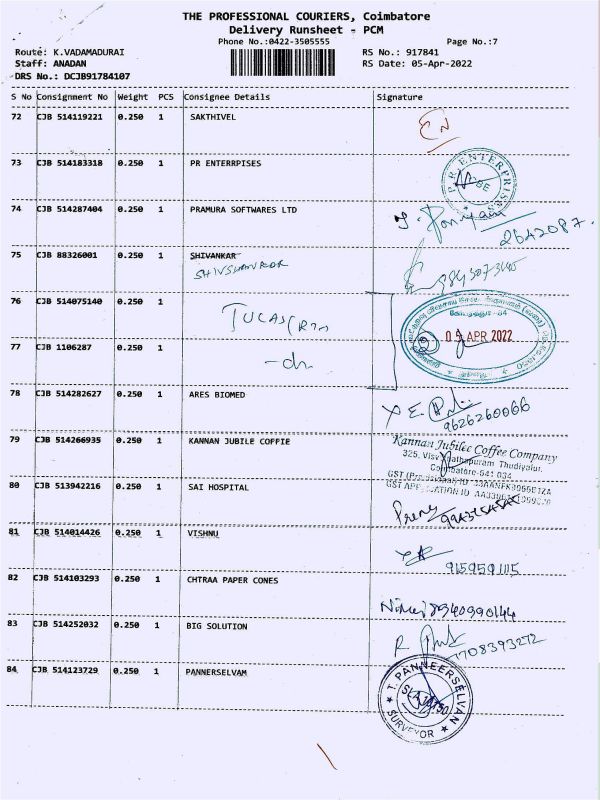 THE PROFESSIONAL COURIERS, Coimbatore
Delivery Runsheet - PCM
Phone No.:0422-3505555
Page No.:7
Route: K.VADAMADURAI
RS No.: 917841
Staff: ANADAN
RS Date: 05-Apr-2022
DRS No.: DCJB91784107
S No Consignment No Weight PCS Consignee Details Signature
72 CJB 514119221 0.250 1 SAKTHIVEL
73 CJB 514183318 0.250 1 PR ENTERRPISES
P.R. ENTERPRISES
CBE
74 CJB 514287404 0.250 1 PRAMURA SOFTWARES LTD
2642087.
75 CJB 88326001 0.250 1 SHIVANKAR
76 CJB 514075140 0.250 1
05 APR 2022
77 CJB 1106287 0.250 1
78 CJB 514282627 0.250 1 ARES BIOMED
9626260066
79 CJB 514266935 0.250 1 KANNAN JUBILE COFFIE
Kannan Jubilee Coffee Company
Thudiyalur,
80 CJB 513942216 0.250 1 SAI HOSPITAL
81 CJB 514014426 0.250 1 VISHNU
82 CJB 514103293 0.250 1 CHTRAA PAPER CONES
8940990144
83 CJB 514252032 0.250 1 BIG SOLUTION
7708393272
84 CJB 514123729 0.250 1 PANNERSELVAM
T. PANNEERSELVAN
SURVEYOR